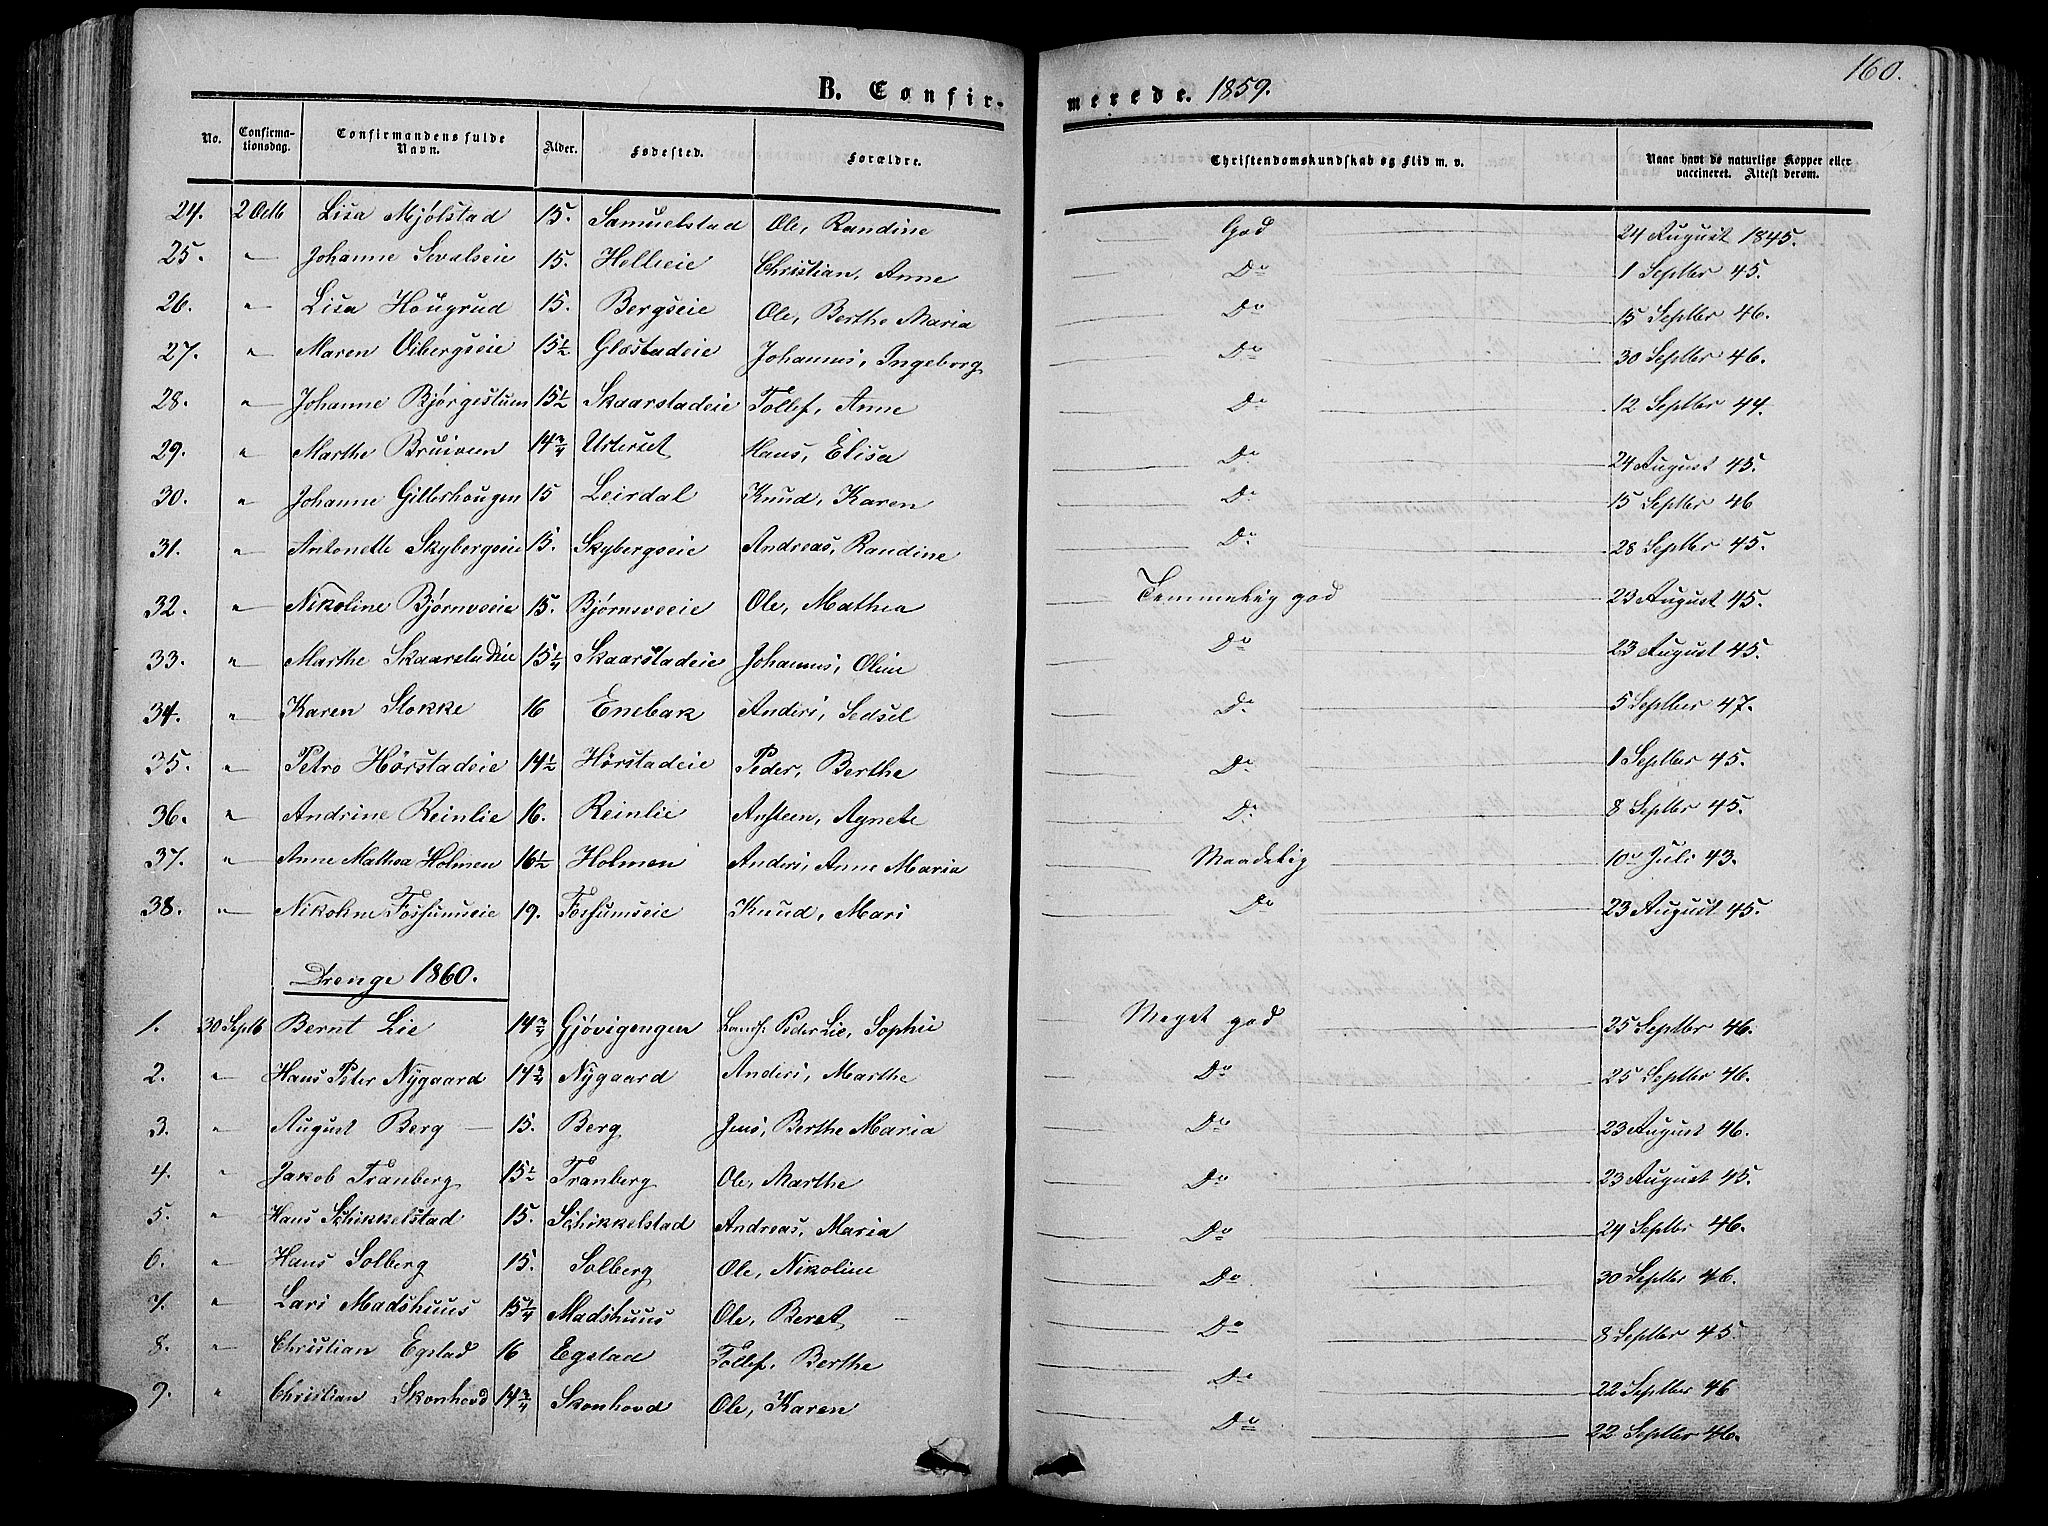 160.
B. Confirmerede. 1859.
No. Confirmationsdag. Confirmandens fulde Navn. Alder. Fødested. Forældre. Christendomskundskab og Flid m. v. Naar havt de naturlige Kopper eller vaccineret. Attest derom.
24. 2 Octb Lisa Mjølstad 15. Samuelstad Ole, Randine God 24 August 1845.
25. " Johanne Sevalseie 15. Helleeie Christian, Anne Do 1 Septbr 45.
26. " Lisa Hougrud 15. Bergseie Ole, Berthe Maria Do 15 Septbr 46.
27. " Maren Vibergseie 15½ Gløstadeie Johannes, Ingeborg Do 30 Septbr 46.
28. " Johanne Bjørgestuen 15½ Skaarstadeie Tollef, Anne Do 12 Septbr 44.
29. " Marthe Bruiven 14¾ Urterset Hans, Elisa Do 24 August 45.
30. " Johanne Gilterhougen 15 Leirdal Knud, Karen Do 15 Septbr 46
31. " Antonette Skybergseie 15. Skybergseie Andreas, Randine Do 28 Septbr 45.
32. " Nikoline Bjørnseie 15. Bjørnseeie Ole, Mathea Temmelig god 23 August 45.
33. " Marthe Skaarstadeie 15¼ Skaarstadeie Johannes, Oline Do 23 August 45.
34. " Karen Stokke 16 Enebak Anders, Sedsel Do 5 Septber 47.
35. " Petro Hørstadeie 14½ Hørstadeie Peder, Berthe Do 1 Septbr 45.
36. " Andrine Reinlie 16. Reinlie Ansteen, Agnete Do 8 Septbr 45.
37. " Anne Mathea Holmen 16½ Holmen Anders, Anne Maria Maadelig 10de Juli 43.
38. " Nikoline Fossumseie 19. Fossumseie Knud, Mari Do 23 August 45.
Drenge 1860.
1. 30 Septb Bernt Lie 14¾ Gjøvigengen Peder Lie, Sophie Meget god 25 Septbr 46.
2. " Hans Peter Nygaard 14¾ Nygaard Anders, Marthe Do 25 Septbr 46.
3. " August Berg 15. Berg Jens, Berthe Maria Do 23 August 46.
4. " Jakob Tranberg 15½ Tranberg Ole, Marthe Do 23 August 45.
5. " Hans Schikkelstad 15. Schikkelstad Andreas, Maria Do 29 Septbr 46.
6. " Hans Solberg 15. Solberg Ole, Nikoline Do 30 Septbr 46.
7. " Lars Madshuus 15¼ Madshuus Ole, Beret Do 8 Septber 45.
8. " Christian Egstad 16 Egstad Tollef, Berthe Do 22 Septbr 46
9. " Christian Skonhovd 14¾ Skonhovd Ole, Karen Do 22 Septbr 46.